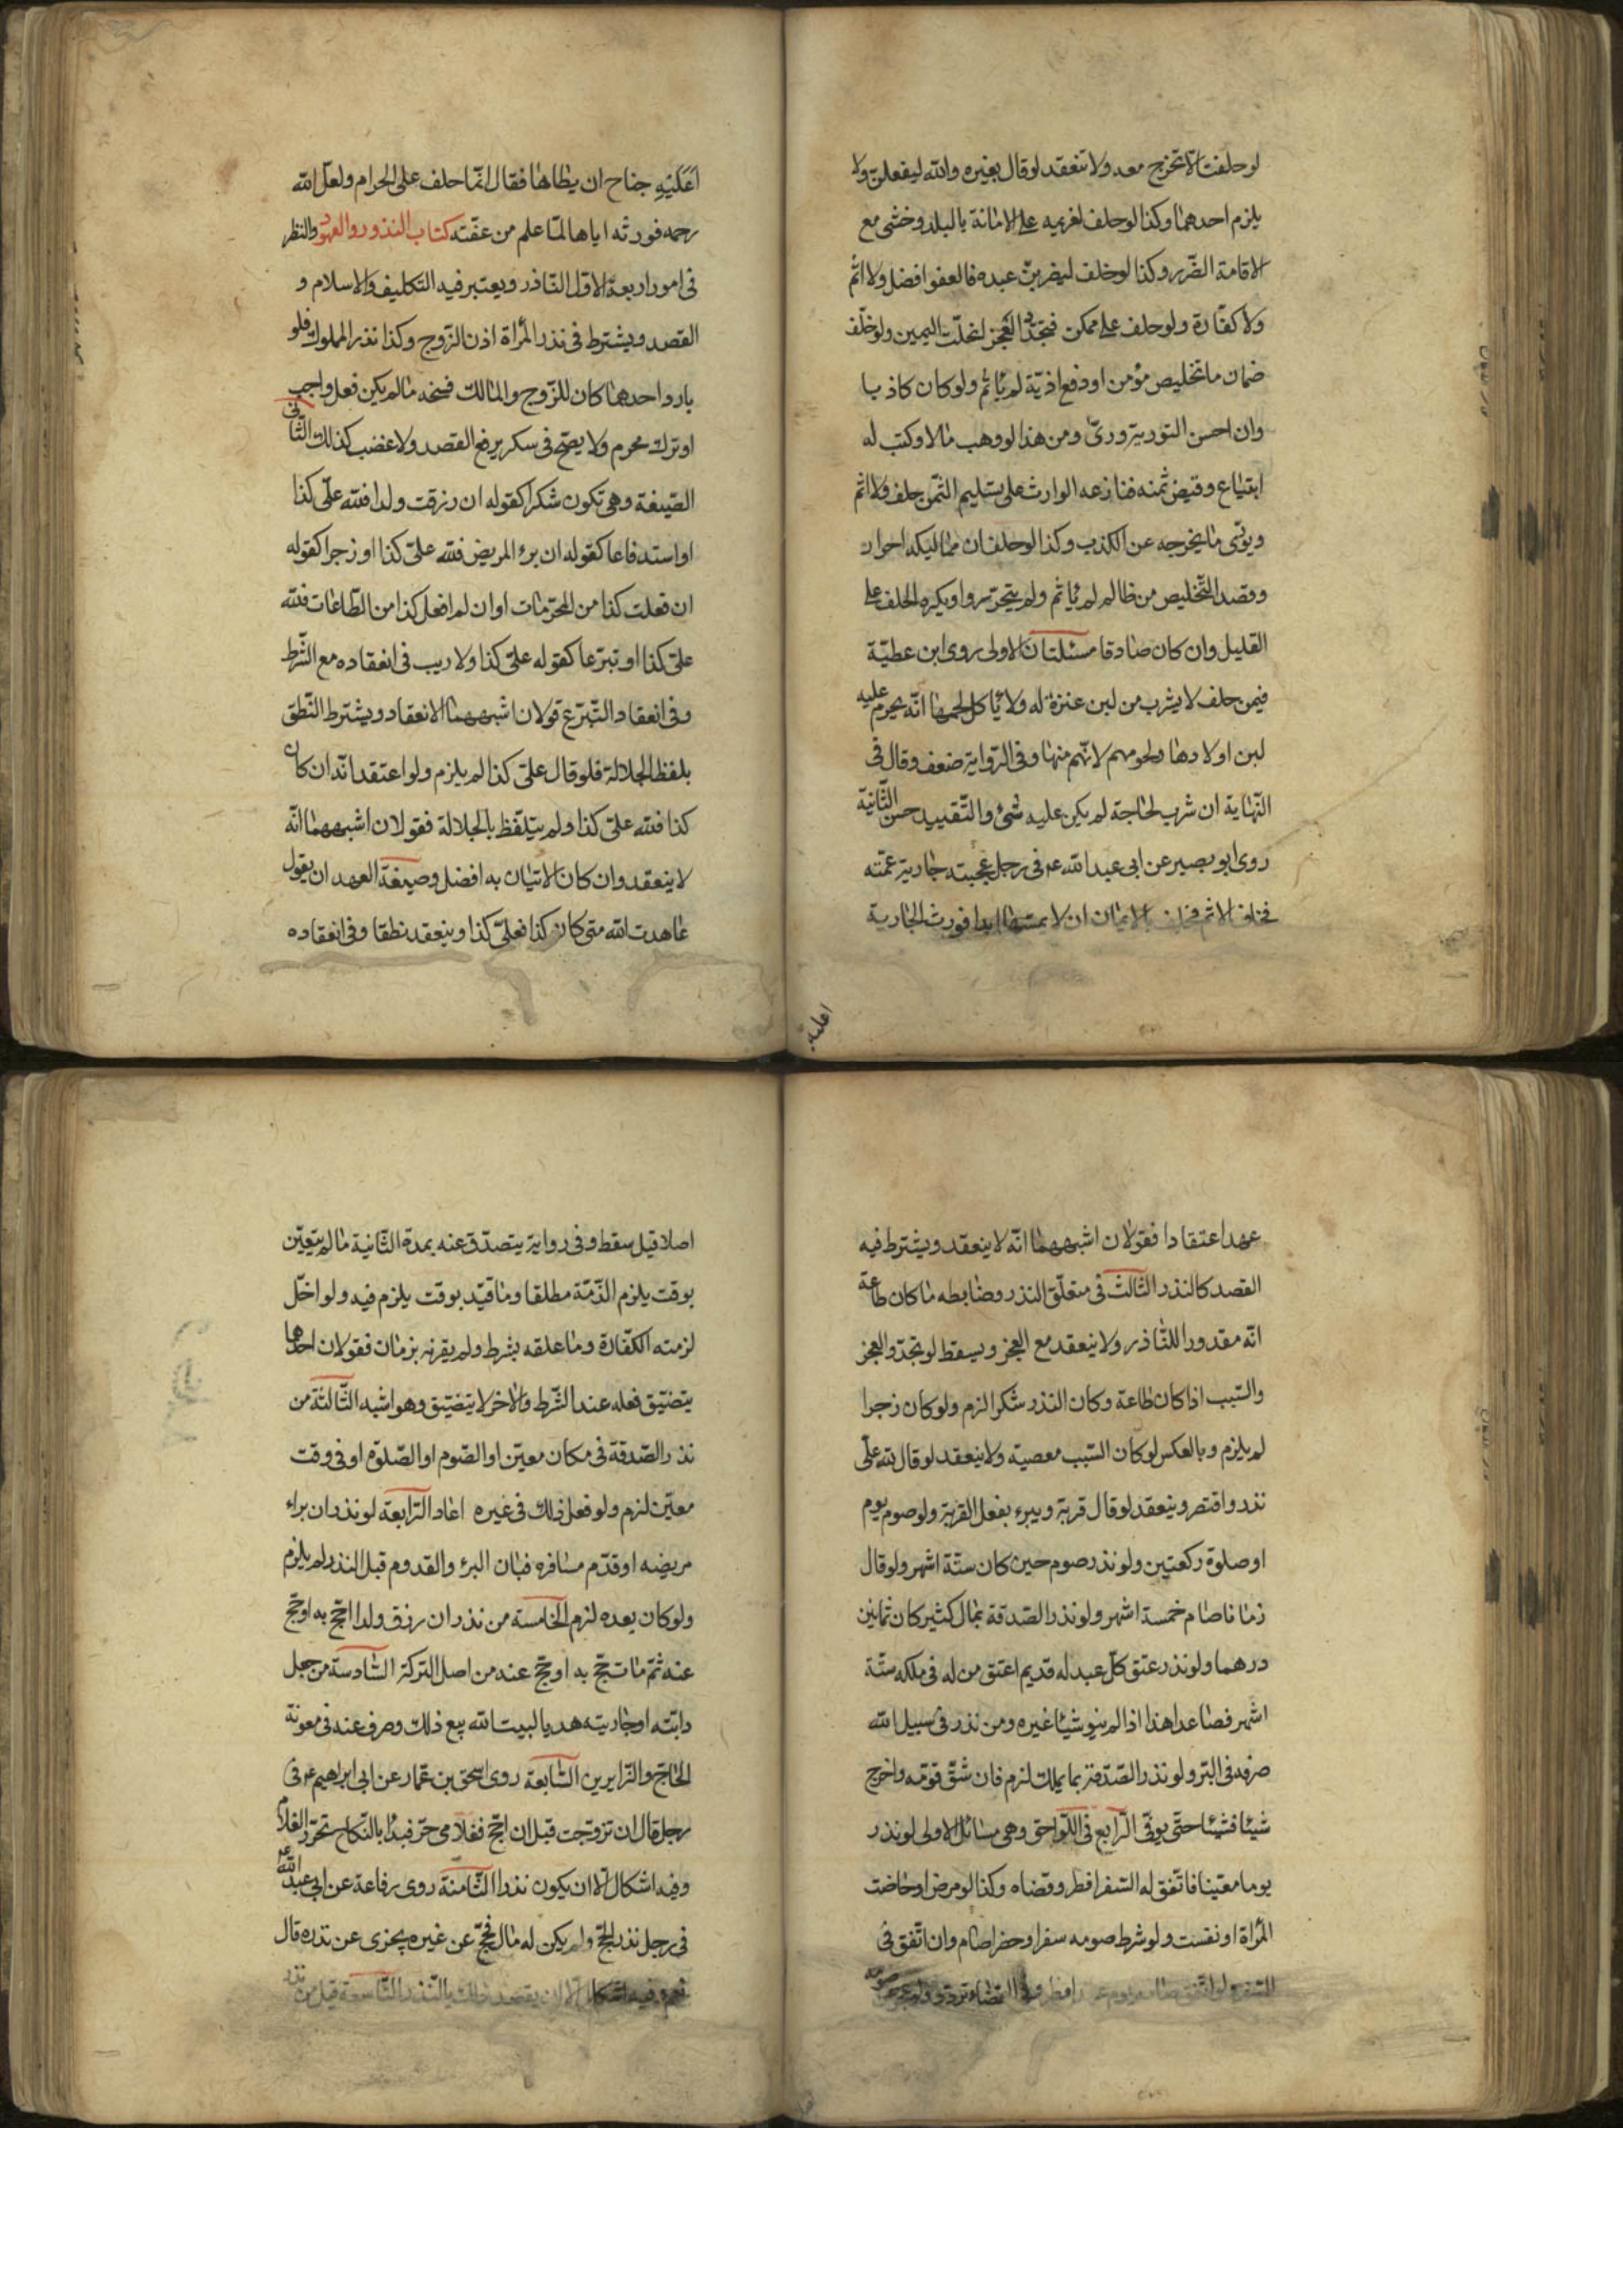 لو حلفت الا تخرج معه ولا تنعقد لو قال بغيره والله ليفعلن ولا
يلزم احدهما وكذا لو حلف لغريمه على الاقامة بالبلد وخشى مع
الاقامة الضرر وكذا لو حلف ليضربن عبده فالعفو افضل ولا اثم
ولا كفارة ولو حلف على ممكن فتجدد العجز انحلت اليمين ولو حلف
ضمان ما تخليص مؤمن او دفع اذية لم ياثم ولو كان كاذبا
وان احسن التورية ورى ومن هذا لو وهب مالا وكتب له
ابتياع وقبض ثمنه فنازعه الوارث على تسليم الثمن حلف ولا اثم
ويورى ما يخرجه عن الكذب وكذا لو حلف ان مماليكه احرار
وقصد التخليص من ظالم لم ياثم ولم يتحرروا ويكره الحلف على
القليل وان كان صادقا مسئلتان الاولى روى ابن عطية
فيمن حلف لا يشرب من لبن عنزة له ولا ياكل لحمها انه يحرم عليه
لبن اولادها ولحومهم لانهم منها وفى الرواية ضعف وقال فى
النهاية ان شرب لحاجة لم يكن عليه شئ والتقييد حسن الثانية
روى ابو بصير عن ابى عبد الله ع فى رجل عجبته جارية عمته
فخاف الاثم فحلف بالايمان ان لا يمسها ابدا فورث الجارية
اعليه
اعليه جناح ان يطاها فقال انما حلف على الحرام ولعل الله
رحمه فورثه اياها لما علم من عفته كتاب النذور والعهود والنظر
فى امور اربعة الاول الناذر ويعتبر فيه التكليف والاسلام و
القصد ويشترط فى نذر المرأة اذن الزوج وكذا نذر المملوك فلو
بادر احدهما كان للزوج والمالك فسخه ما لم يكن فعل واجب
او ترك محرم ولا يصح فى سكر يرفع القصد ولا غضب كذلك الثانى
الصيغة وهى تكون شكرا كقوله ان رزقت ولدا فلله على كذا
او استدفاعا كقوله ان برء المريض فلله على كذا او زجرا كقوله
ان فعلت كذا من المحرمات او ان لم افعل كذا من الطاعات فلله
على كذا او تبرعا كقوله على كذا ولا ريب فى انعقاده مع الشرط
وفى انعقاد التبرع قولان اشبههما الانعقاد ويشترط النطق
بلفظ الجلالة فلو قال على كذا لم يلزم ولو اعتقد انه ان كان
كذا فلله على كذا ولم يتلفظ بالجلالة فقولان اشبههما انه
لا ينعقد وان كان الاتيان به افضل وصيغة العهد ان يقول
عاهدت الله متى كان كذا فعلى كذا وينعقد نطقا وفى انعقاده
عهدا اعتقادا فقولان اشبههما انه لا ينعقد ويشترط فيه
القصد كالنذر الثالث فى متعلق النذر وضابطه ما كان طاعة
انه مقدورا للناذر ولا ينعقد مع العجز ويسقط لو تجدد العجز
والسبب اذا كان طاعة وكان النذر شكرا لزم ولو كان زجرا
لم يلزم وبالعكس لو كان السبب معصية ولا ينعقد لو قال لله على
نذر واقتصر وينعقد لو قال قربة ويبرء بفعل القربة ولو صوم يوم
او صلوة ركعتين ولو نذر صوم حين كان ستة اشهر ولو قال
زمانا صام خمسة اشهر ولو نذر الصدقة بمال كثير كان ثمانين
درهما ولو نذر عتق كل عبد له قديم اعتق من له فى ملكه ستة
اشهر فصاعدا هذا اذا لم ينو شيئا غيره ومن نذر فى سبيل الله
صرفه فى البر ولو نذر الصدقة بما يملك لزم فان شق قومه واخرج
شيئا فشيئا حتى يوفى الرابع فى اللواحق وهى مسائل الاولى لو نذر
يوما معينا فاتفق له السفر افطر وقضاه وكذا لو مرض او حاضت
المرأة او نفست ولو شرط صومه سفرا وحضرا صام وان اتفق فى
السفر ولو اتفق افطر وفى القضاء تردد ولو عجز صومه
اصلا قيل سقط وفى رواية يتصدق عنه بمدة الثانية ما لم يتعين
بوقت يلزم الذمة مطلقا وما قيد بوقت يلزم فيه ولو اخل
لزمته الكفارة وما علقه بشرط ولم يقرنه بزمان فقولان احدها
يتضيق فعله عند الشرط والاخر لا يتضيق وهو اشبه الثالثة من
نذر الصدقة فى مكان معين او الصوم او الصلوة او فى وقت
معين لزم ولو فعل ذلك فى غيره اعاد الرابعة لو نذر ان براء
مريضه او قدم مسافره فبان البرء والقدوم قبل النذر لم يلزم
ولو كان بعده لزم الخامسة من نذر ان رزق ولدا احج به او حج
عنه ثم مات حج به او حج عنه من اصل التركة السادسة من جعل
دابته او جاريته هديا لبيت الله بيع ذلك وصرف عنه فى معونة
الحاج والزايرين السابعة روى اسحق بن عمار عن ابى ابراهيم ع فى
رجل قال ان تزوجت قبل ان احج فغلامى حر فبدا بالنكاح تحرر الغلام
وفيه اشكال الا ان يكون نذرا الثامنة روى رفاعة عن ابى عبد الله ع
فى رجل نذر الحج ولم يكن له مال فحج عن غيره يجزى عن نذره قال
نعم وفيه اشكال الا ان يقصد ذلك بالنذر التاسعة قيل من نذر